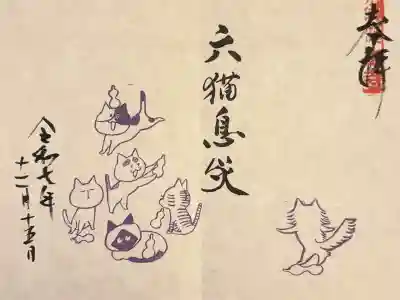 奉拝
六猫息災
令和七年
十二月十五日